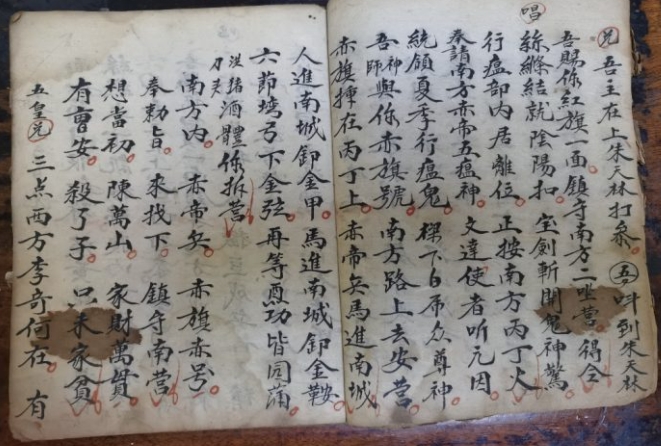 唱
兄 吾主在上朱天林打叅 五 呌到朱天林
吾賜你紅旗一面鎮守南方二坐营 得令
絲縧結就陰陽扣 宝劍斬開鬼神驚
行瘟部内居離位 正按南方丙丁火
奉請南方赤帝五瘟神 文達使者听元因
統領夏季行瘟鬼 樑下6帋众尊神
吾神師與你赤旗號 南方路上去安营
赤旗揷在丙丁上 赤帝兵馬進南城
人進南城卸金甲 馬進南城卸金鞍
六節塆弓下金弦 再等恩功皆囘蒲
刀夫 酒體你拆营
南方内 一赤帝兵 赤旗赤号
奉勅旨 來找下 鎮守南营
想當初 陳萬山 家財萬貫
有曹安 殺了子 只未家貧
五皇 兄 三点西方李奇何在 有